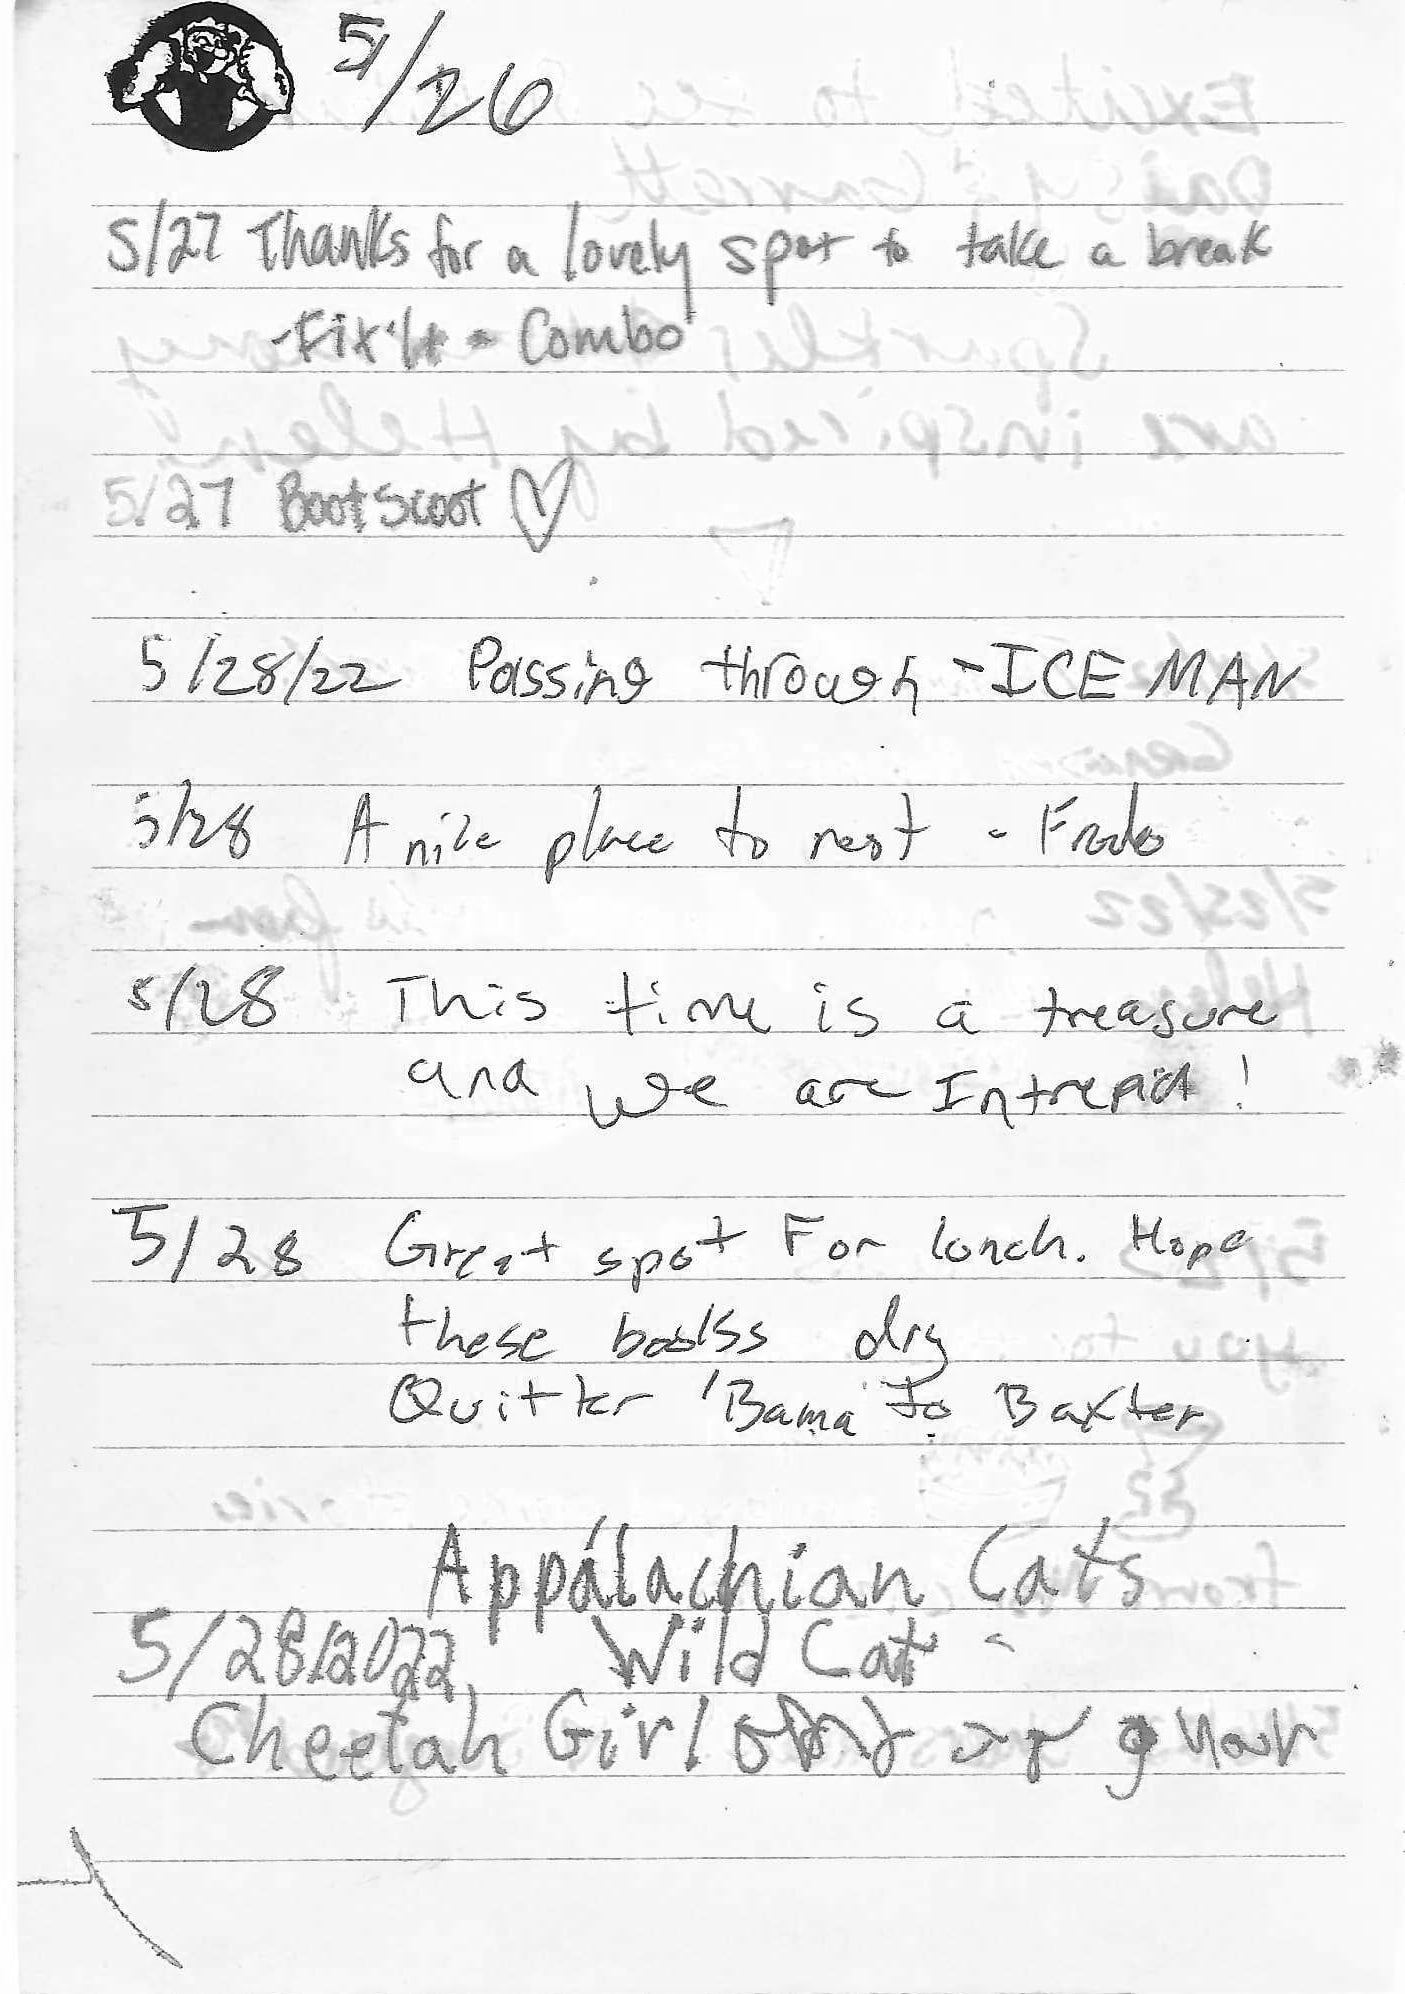 5/26
5/27 Thanks for a lovely spot to take a break
-Fix It - Combo
5/27 BootScoot
5/28/22 Passing through - ICE MAN
5/28 A nice place to rest - Frodo
5/28 This time is a treasure
and we are Intrepid!
5/28 Great spot For lunch. Hope
these books dry
Quitter 'Bama to Baxter
Appalachian Cats
5/28/2022 Wild Cat -
Cheetah Girl